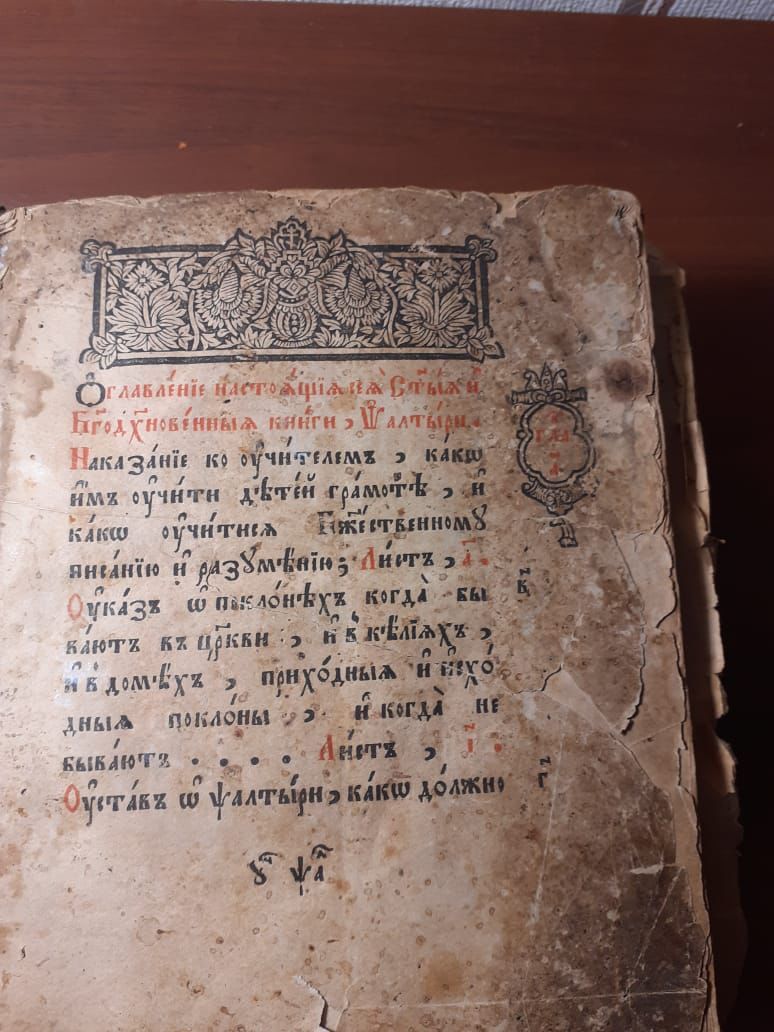 Ѻ҆главле́нїе настоѧ́щїѧ сеѧ̀ Ст҃ы́ѧ и҆
Бг҃одх҃нове́нныѧ кни́ги , Ѱалты́ри .
глава̀
а҃
Наказа́нїе ко ᲂу҆чи́телемъ , ка́кѡ
и҆̀мъ ᲂу҆чи́ти дѣте́й гра́мотѣ , и҆
ка́кѡ ᲂу҆чи́тисѧ Бж҃е́ственномꙋ
писа́нїю и҆ разꙋмѣ́нїю ; Ли́стъ , а҃ .
Оу҆ка́зъ ѡ҆ покло́нѣхъ когда̀ бы
в҃
ва́ютъ въ цр҃кви ; и҆ в̾ ке́лїѧхъ ,
и҆ в̾ домѣ́хъ , прихо́дныѧ и҆ исхо́
дныѧ покло́ны , и҆ когда̀ не
быва́ютъ . . . . Ли́стъ , і҃ .
г҃
Оу҆ста́въ ѡ҆ ѱалты́ри , ка́кѡ до́лжно
ѱа